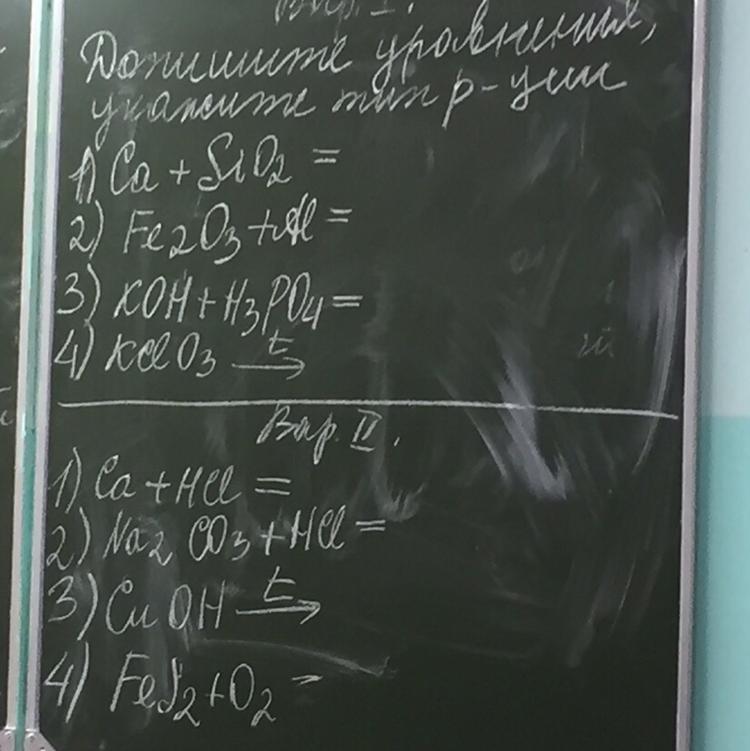 Вар. I.
Допишите уравнения,
укажите тип р-ции
1) Ca + SiO2 =
2) Fe2O3 + Al =
3) KOH + H3PO4 =
4) KClO3 t→
Вар. II.
1) Ca + HCl =
2) Na2CO3 + HCl =
3) CuOH t→
4) FeS2 + O2 =